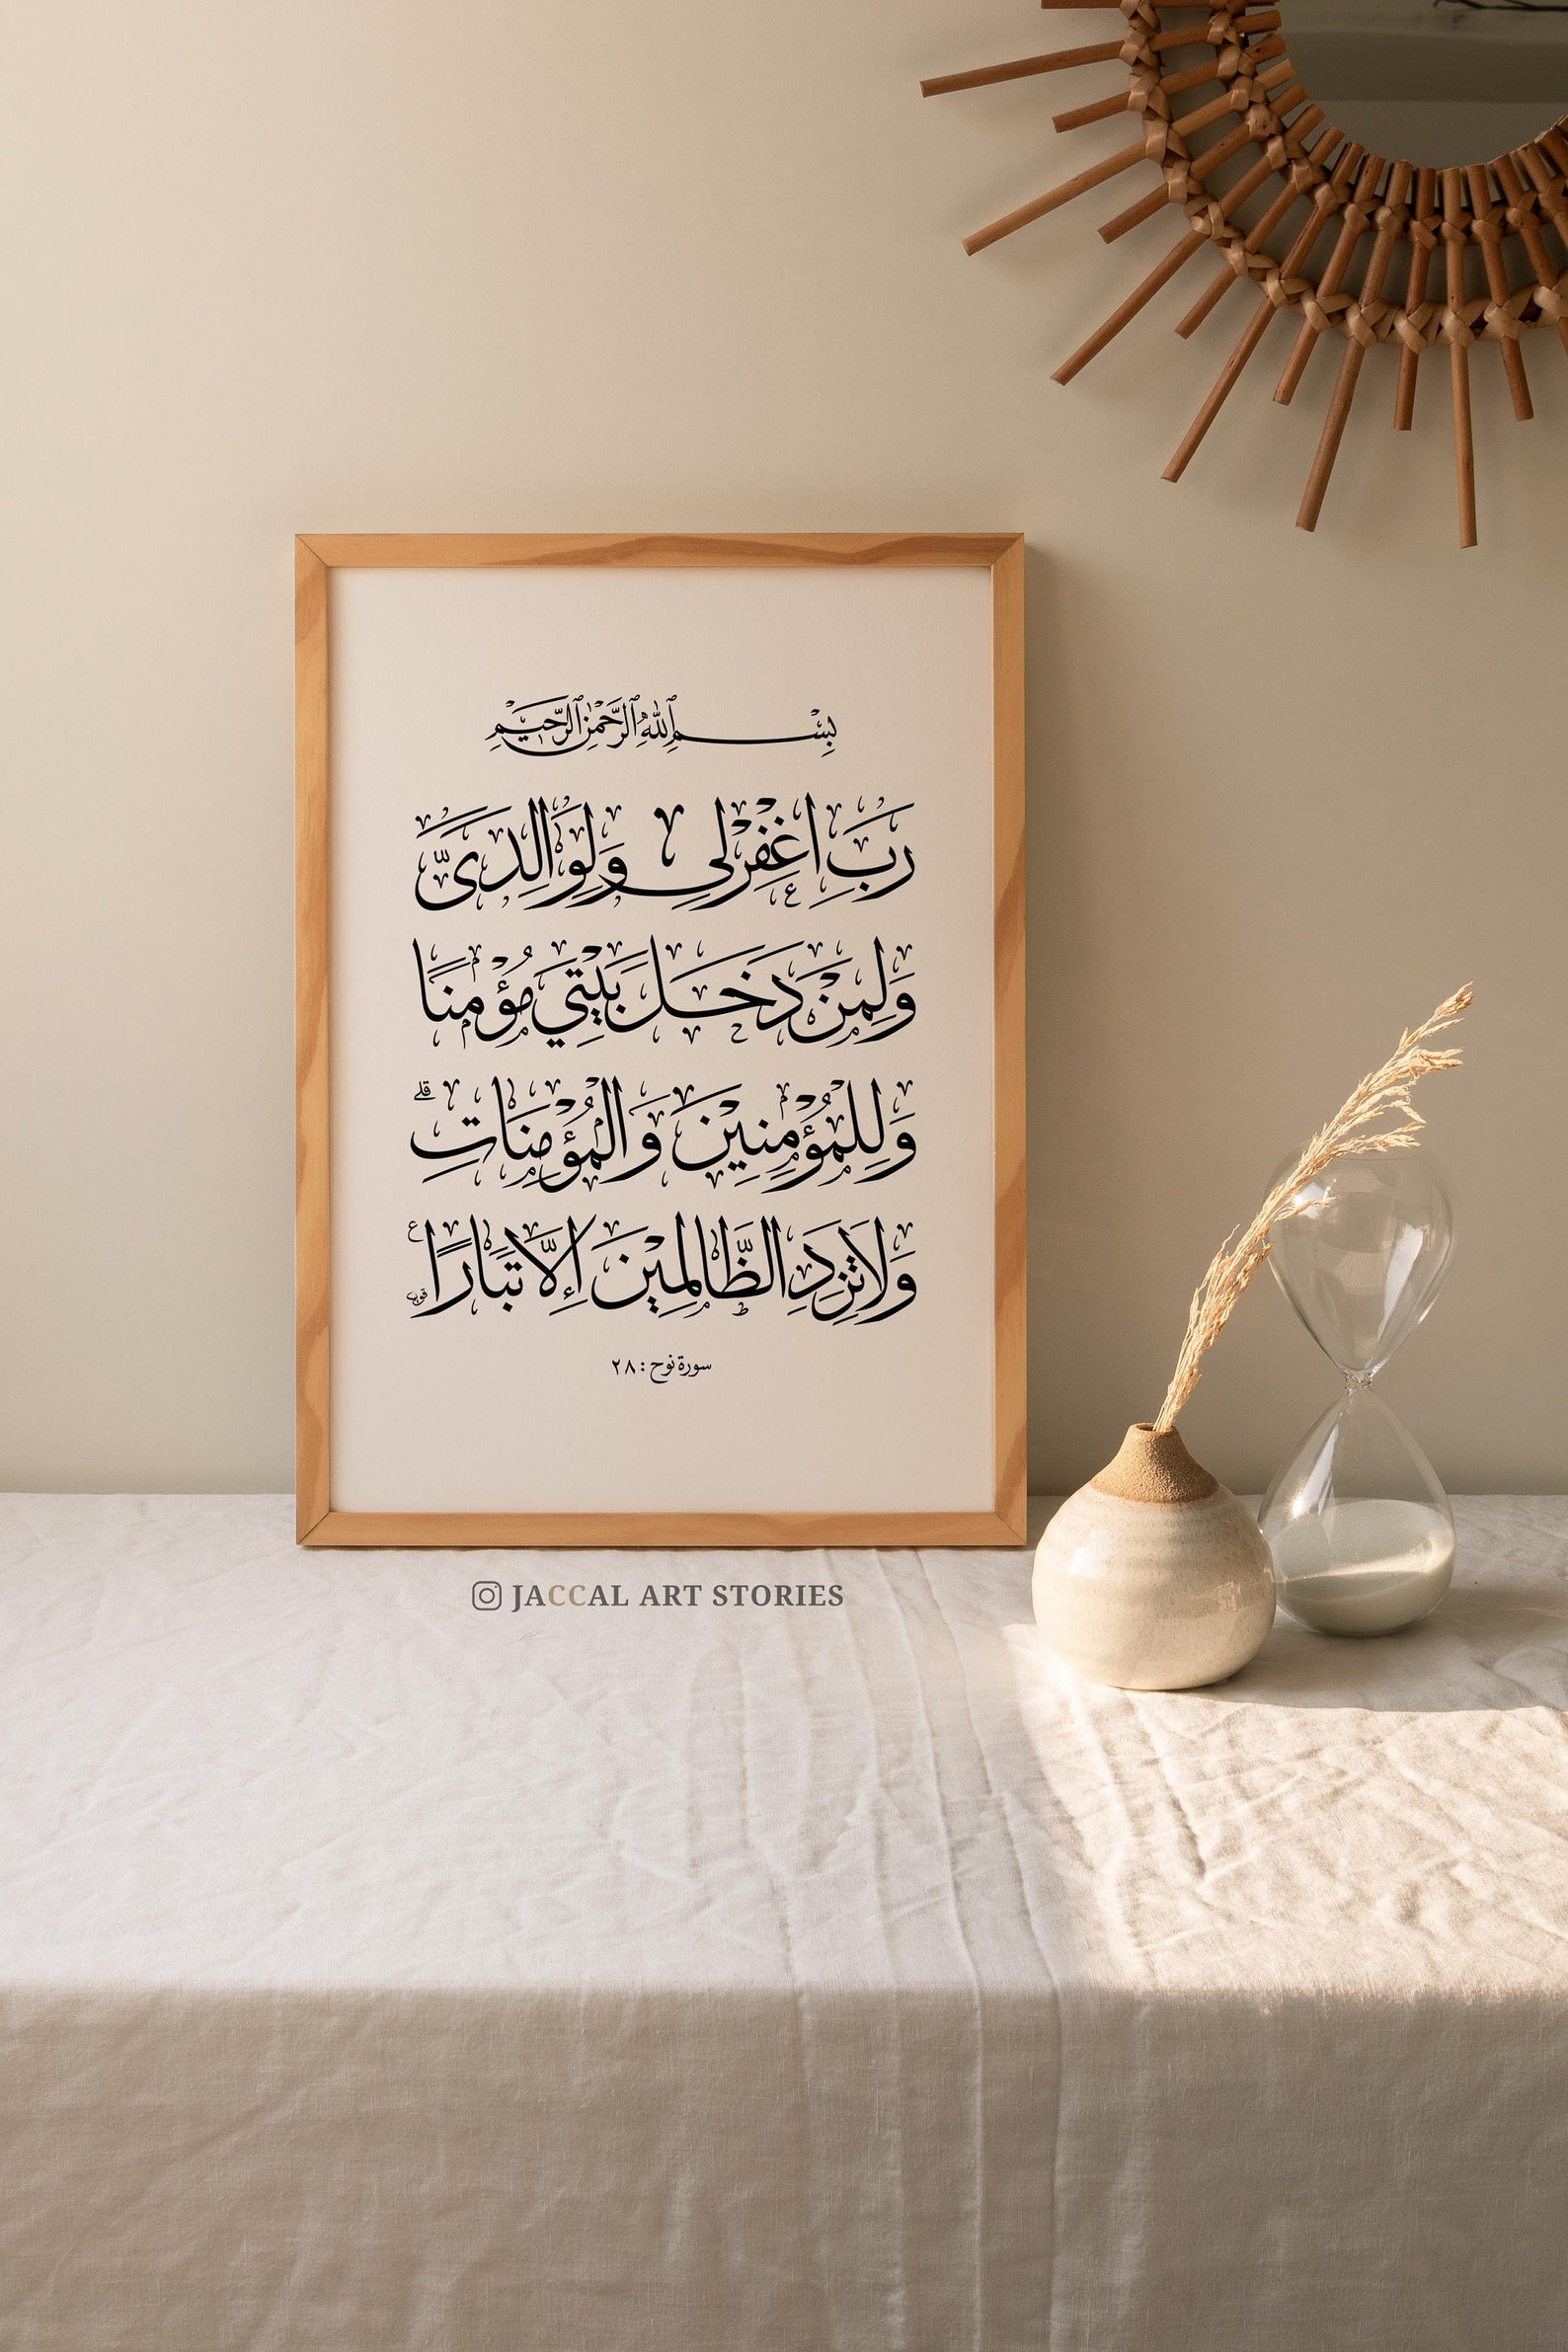 بِسْمِ اللهِ الرَّحْمٰنِ الرَّحِيْمِ
رَبِّ اغْفِرْلِى وَلِوَالِدَىَّ
وَلِمَنْ دَخَلَ بَيْتِيَ مُؤْمِنًا
وَلِلْمُؤْمِنِيْنَ وَالْمُؤْمِنَاتِ ۗ
وَلَا تَزِدِ الظَّالِمِيْنَ اِلَّا تَبَارًا ع
سورة نوح : ٢٨
JACCAL ART STORIES